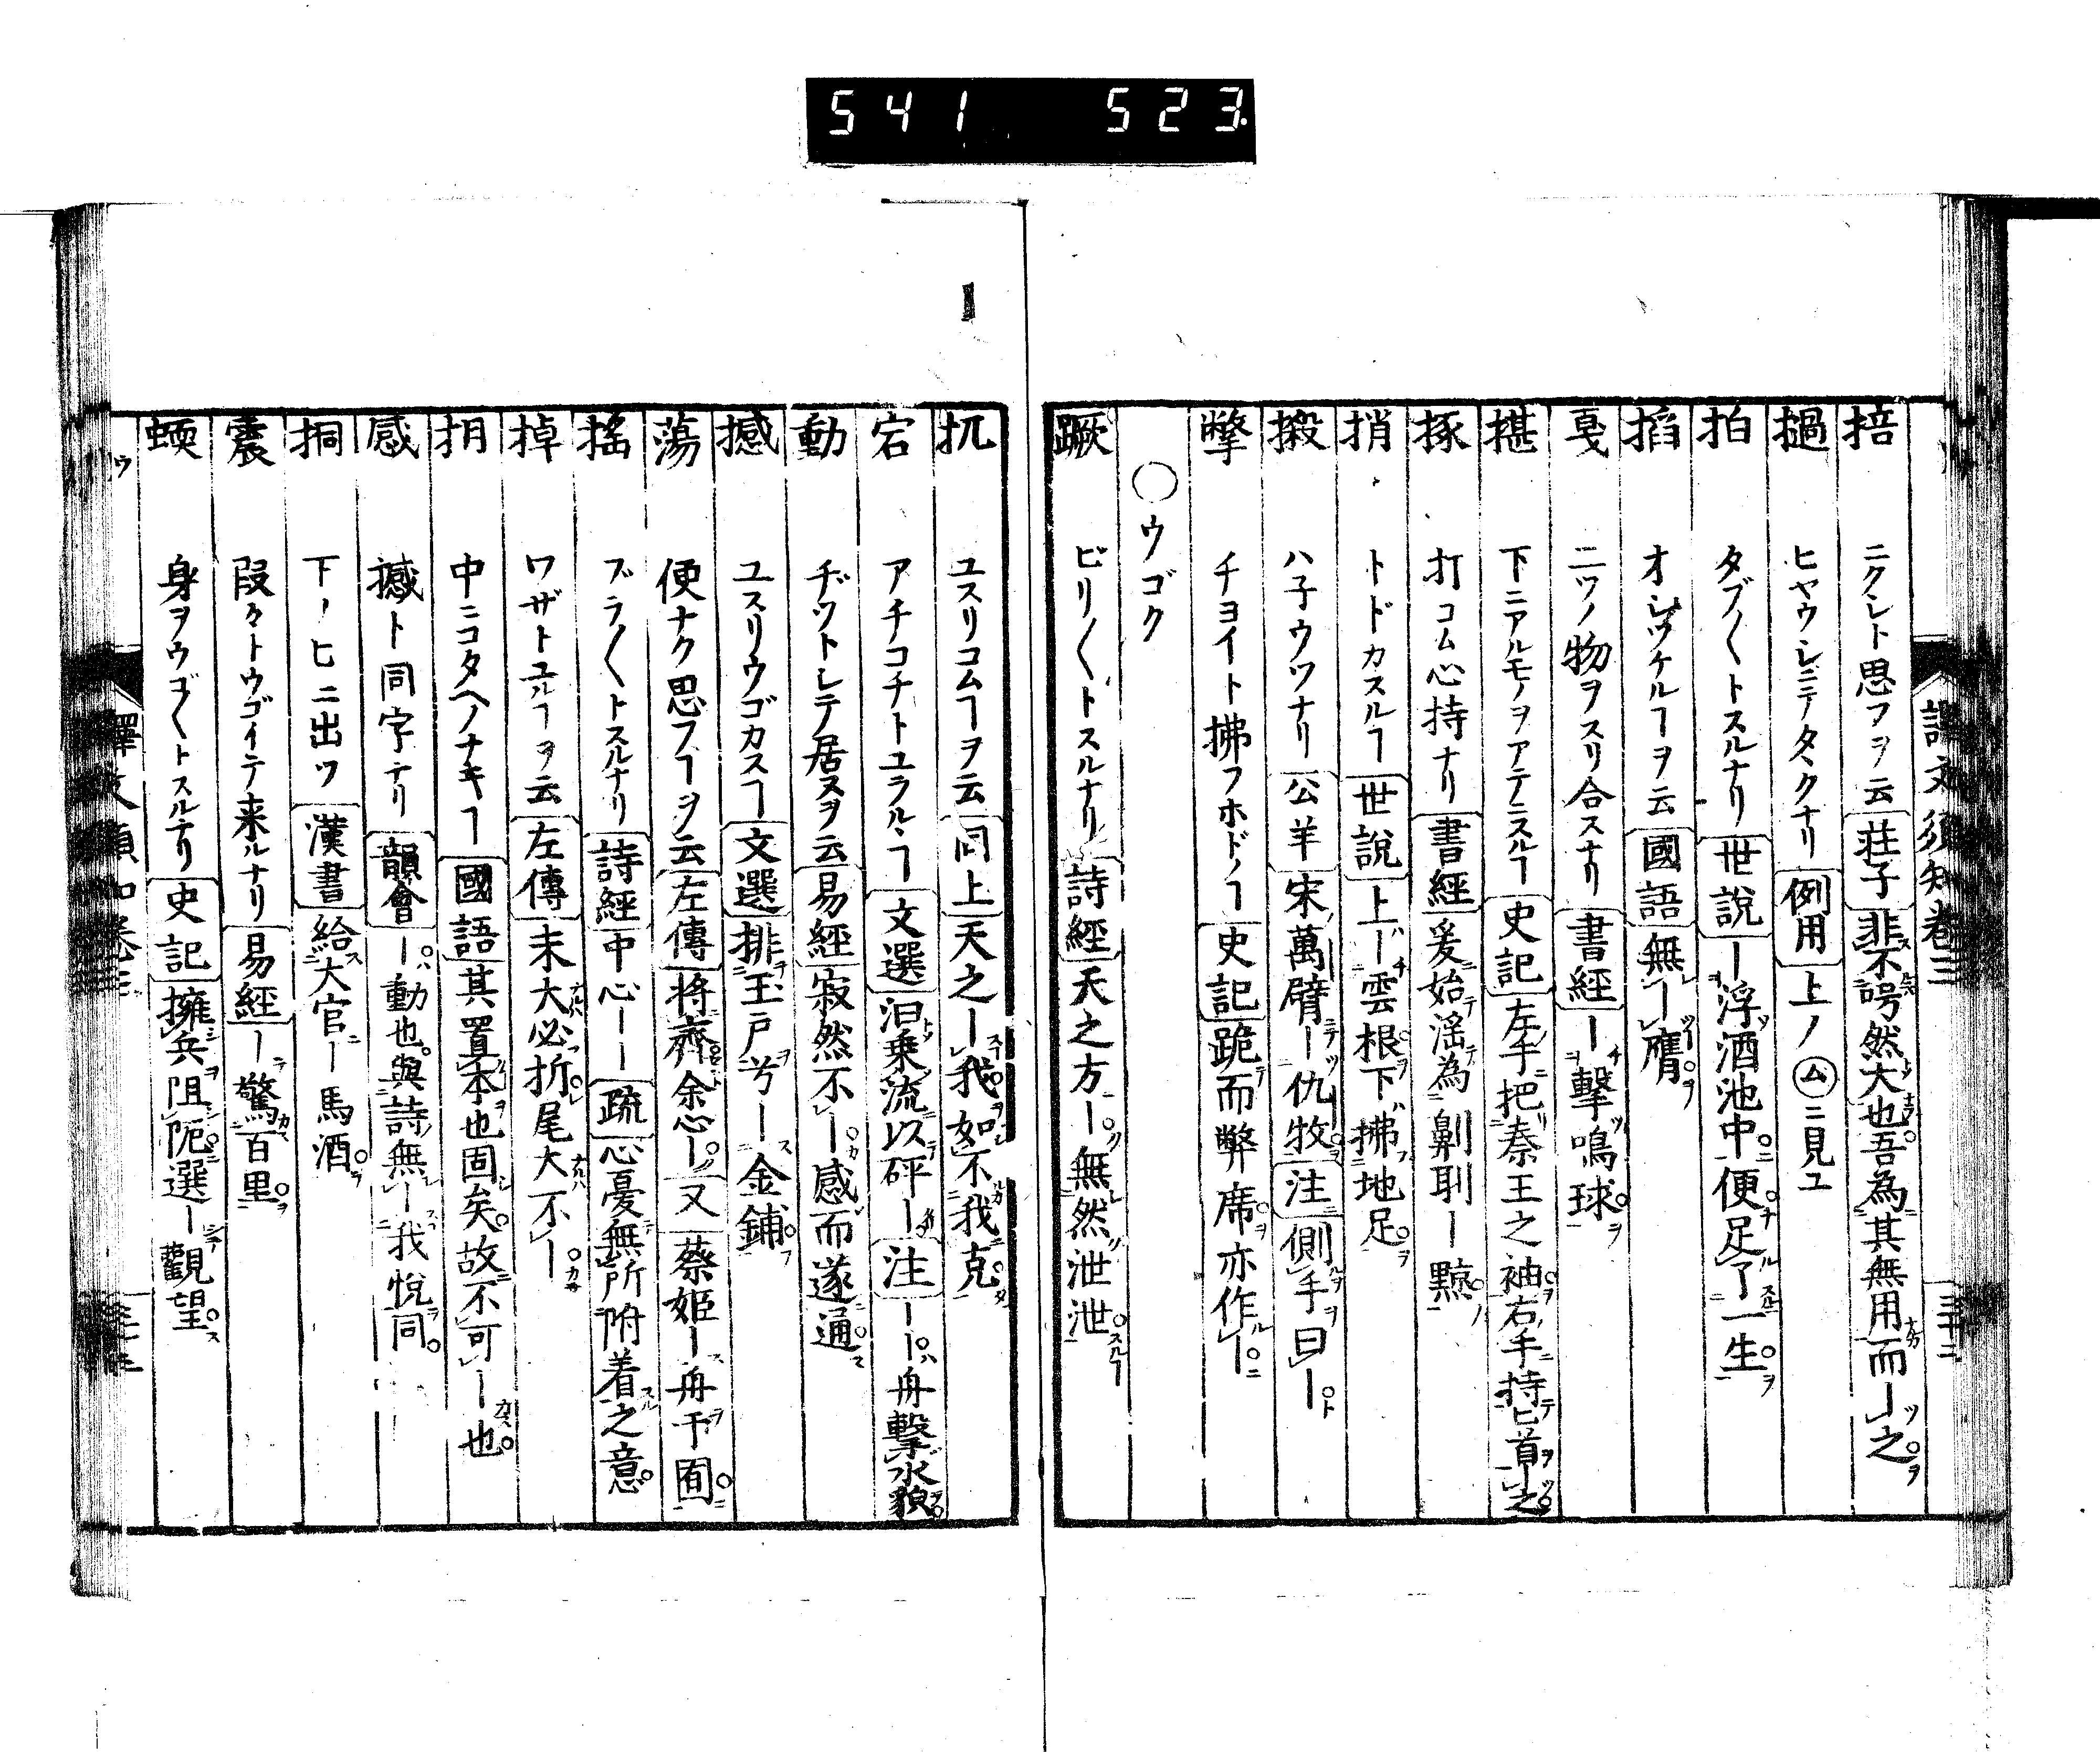 541 523
譯文須知卷三 三十二
掊 ニクシト思フヲ云 莊子 非不呺然大也吾為其無用而ー之
撾 ヒヤウシニテタタクナリ 例用 上ノム二見ユ
拍 タブ〱トスルナリ 世說 ー浮酒池中便足了一生
搯 オシツケルヿヲ云 國語 無ー膺
戛 二ツノ物ヲスリ合スナリ 書經 ー擊鳴球
揕 下ニアルモノヲアテニスルヿ 史記 左手把秦王之袖右手持匕首ー之
椓 打コム心持ナリ 書經 爰始淫為劓刵ー黥
捎 トドカスルヿ 世說 上ー雲根下拂地足
摋 ハ子ウツナリ 公羊 宋萬臂ー仇牧 注 側手曰ー
撆 チヨイト拂フホドノヿ 史記 跪而幣席亦作ー
○ウゴク
蹶 ビリ〱トスルナリ 詩經 天之方ー無然泄泄
扤 ユスリコムヿヲ云 同上 天之ー我如不我克
宕 アチコチトユラルヽヿ 文選 汩乗流以砰ー 注 ーーハ舟擊水貌
動 ヂツトシテ居ヌヲ云 易經 寂然不ー感而遂通
撼 ユスリウゴカスヿ 文選 排玉戶兮ー金鋪
蕩 便ナク思フヿヲ云 左傳 将齊余心ー 又 蔡姬ー舟于囿
搖 ブラ〱トスルナリ 詩經 中心ーー 疏 心憂無所附着之意
掉 ワザトユルヿヲ云 左傳 末大必折尾大不ー
抈 中ニコタヘノナキヿ 國語 其置本也固矣故不可ー也
感 撼ト同字ナリ 韻會 ー動也與詩無ー我帨同
挏 下ノヒニ出ツ 漢書 給大官ー馬酒
震 段々トウゴイテ来ルナリ 易經 ー驚百里
蝡 身ヲウゴ〱トスルナリ 史記 擁兵阻阨選ー觀望
ウ 譯文須知卷三